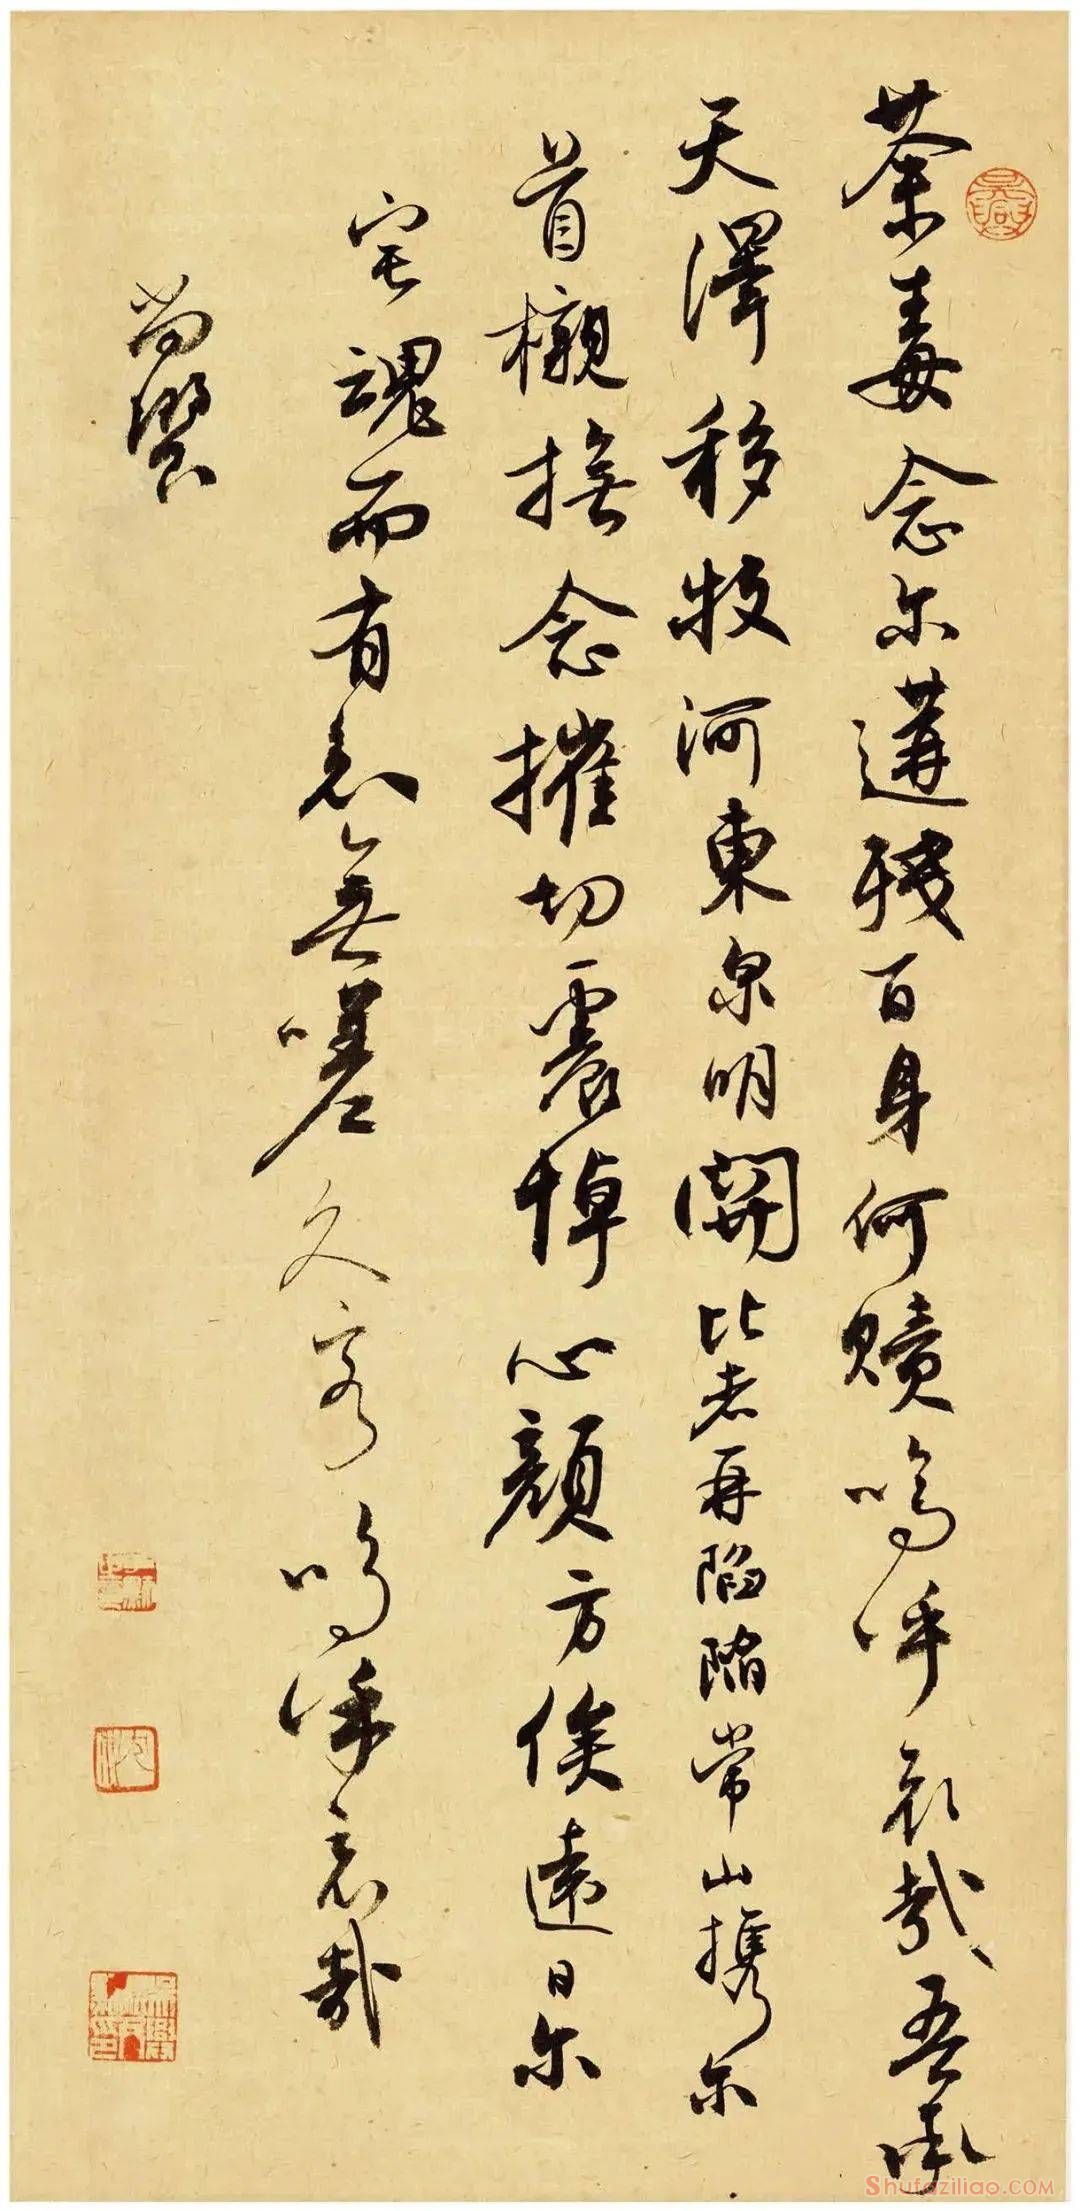 荼毒念尔遘残百身何赎呜呼哀哉吾承
天澤移牧河東泉明開比者再陷陷常山携尔
首櫬撫念摧切震悼心顔方俟遠日尔
宅魂而有知無嗟久客呜呼哀哉
尚饗
Shufaziliao.COM